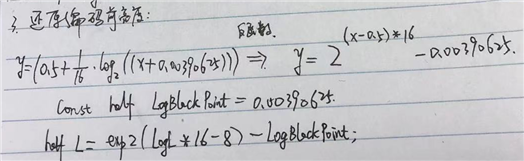 3. 还原编码前亮度:
反函数.
y=(0.5+1/16·log₂((x+0.00390625))) ⇒ y=2^(x-0.5)*16 -0.00390625.
Const half LogBlackPoint = 0.00390625.
half L = exp2(LogL *16-8) - LogBlackPoint;